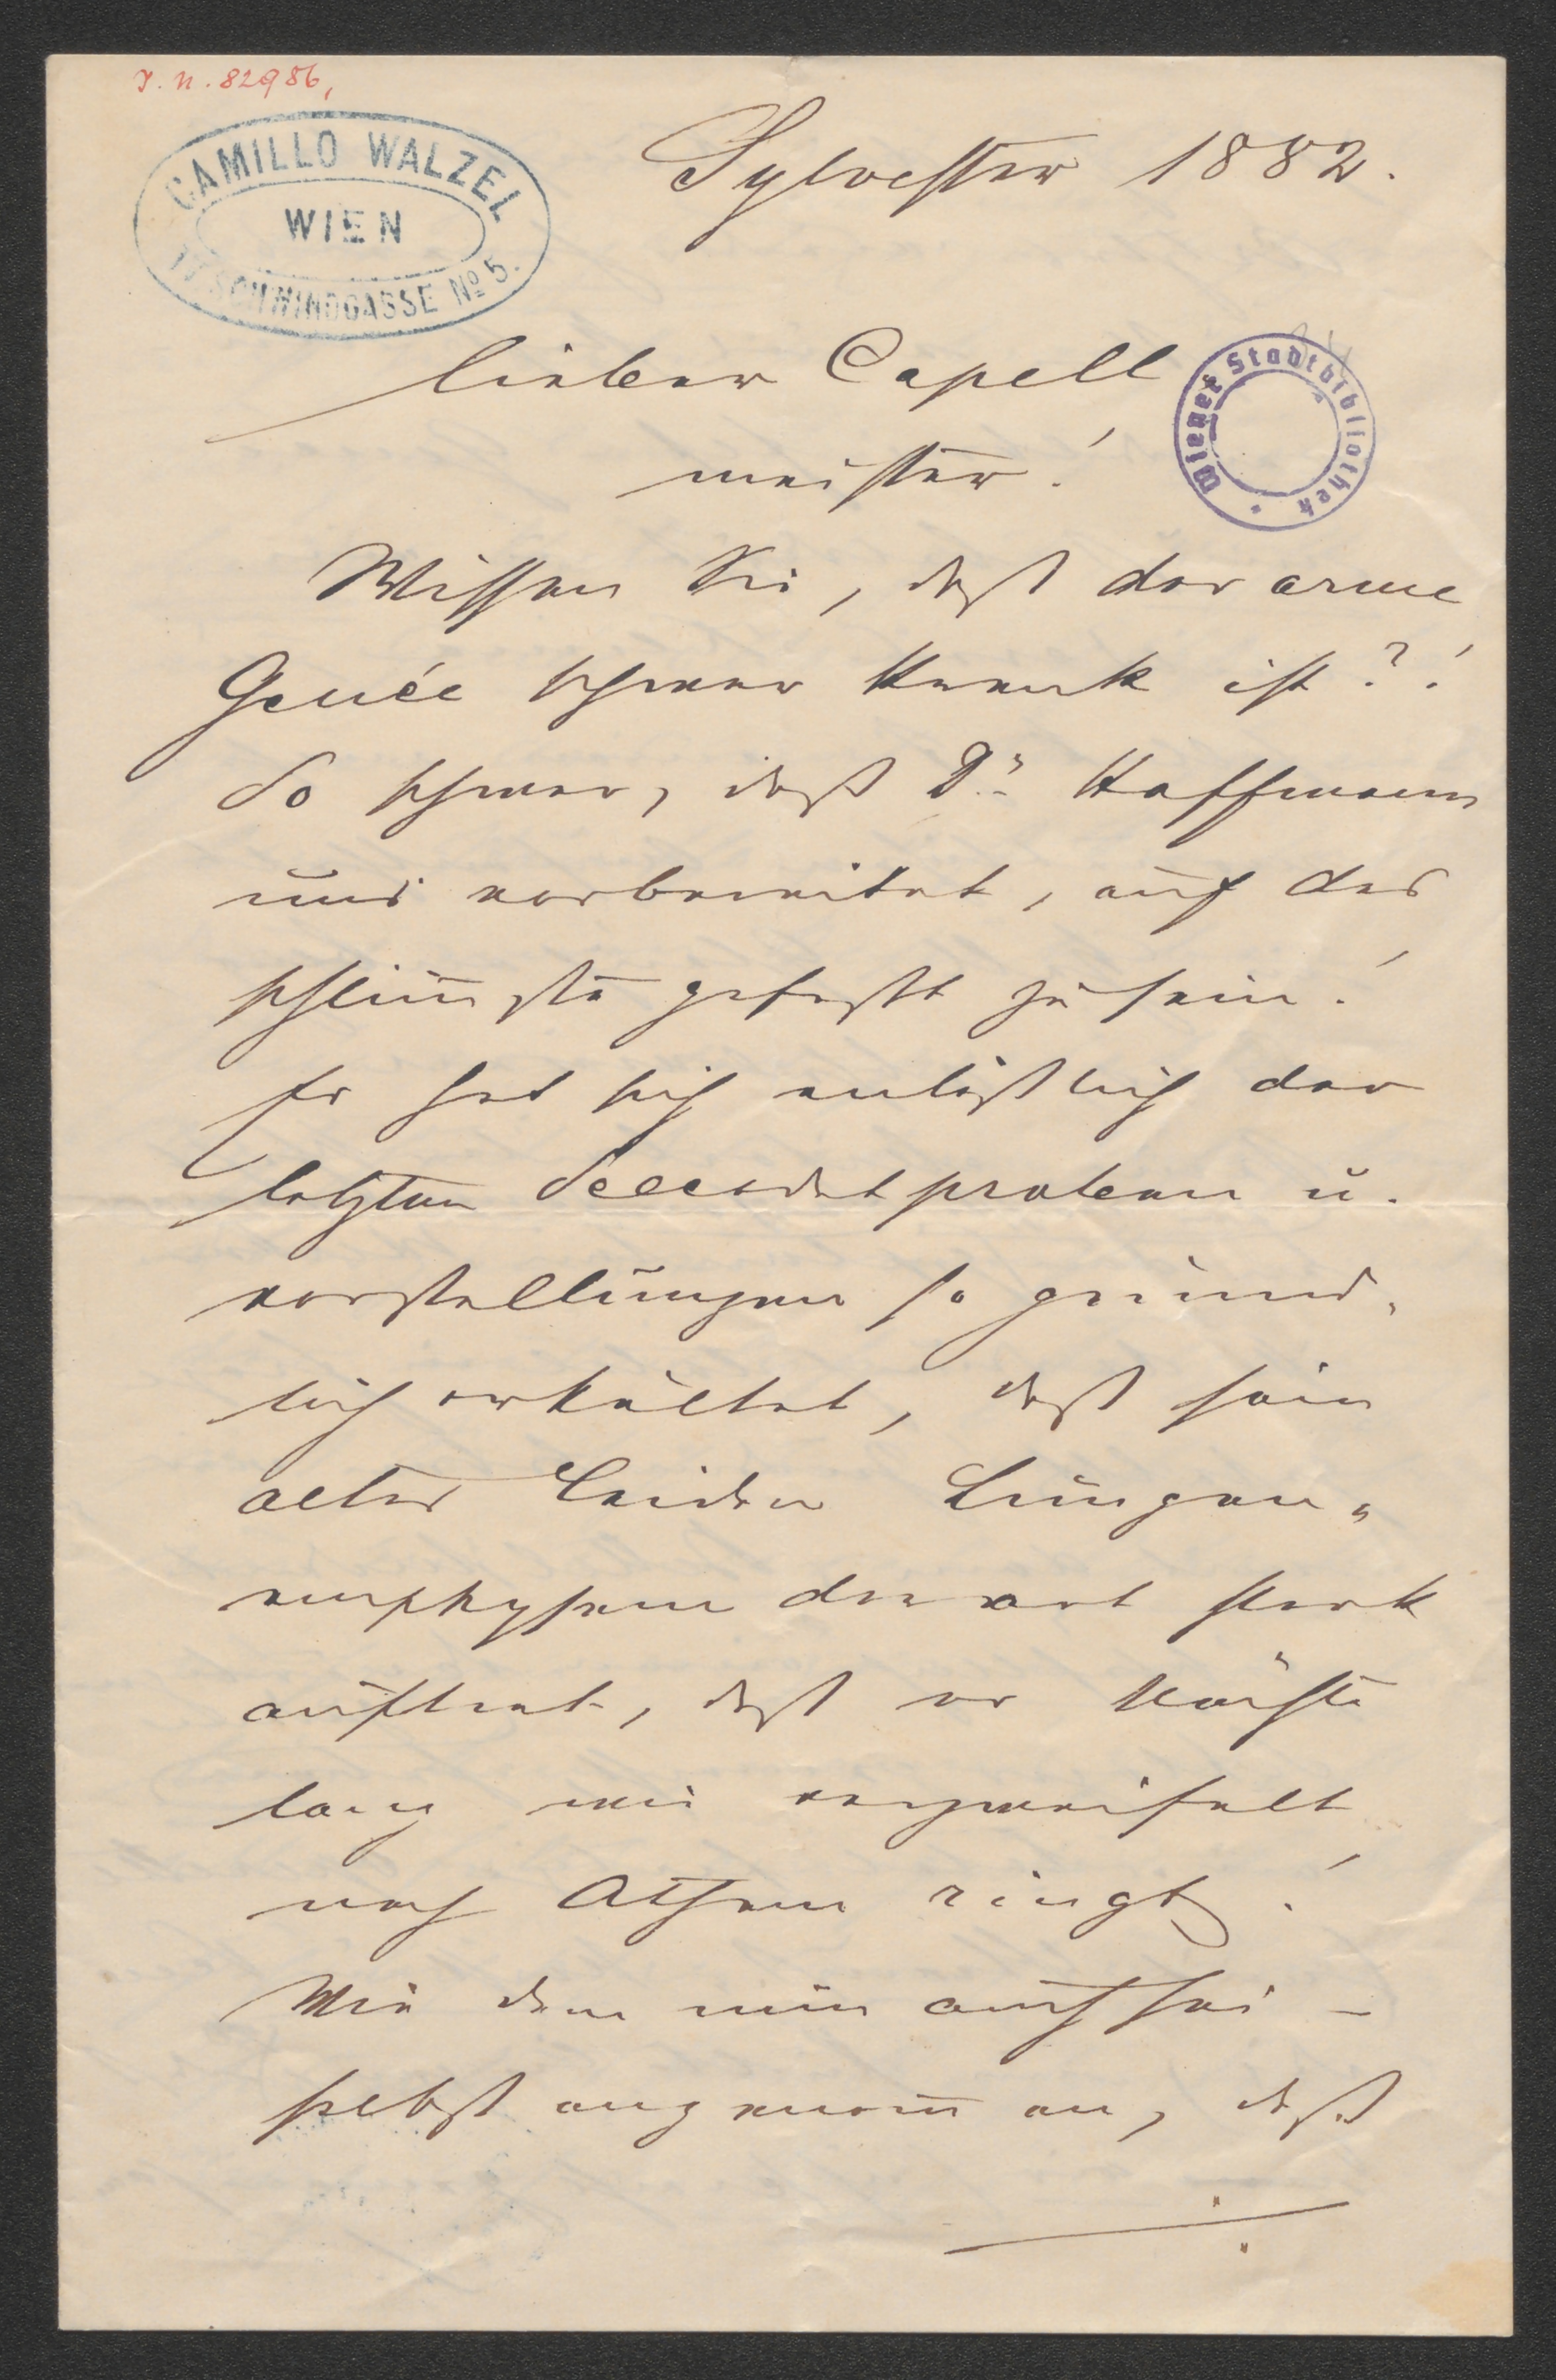 J.N. 82986,
CAMILLO WALZEL
WIEN
IV. SCHWINDGASSE No 5.
Sylvester 1882.
Wiener Stadtbibliothek
Lieber Capell
meister!
Wissen Sie, daß der arme
Genée schwer krank ist?!
So schwer, daß Dr. Hoffmann
uns vorbereitet, auf das
schlim̅ste gefaßt zu sein!
Er hat sich anläßlich der
letzten Seecadetproben u.
vorstellungen so gründ-
lich erkältet, daß sein
altes Leiden Lungen-
emphysem derart stark
auftrat, daß er Nächte
lang wie verzweifelt
nach Athem ringt!
Wie dem nun auch sei –
selbst angenom̅en, daß